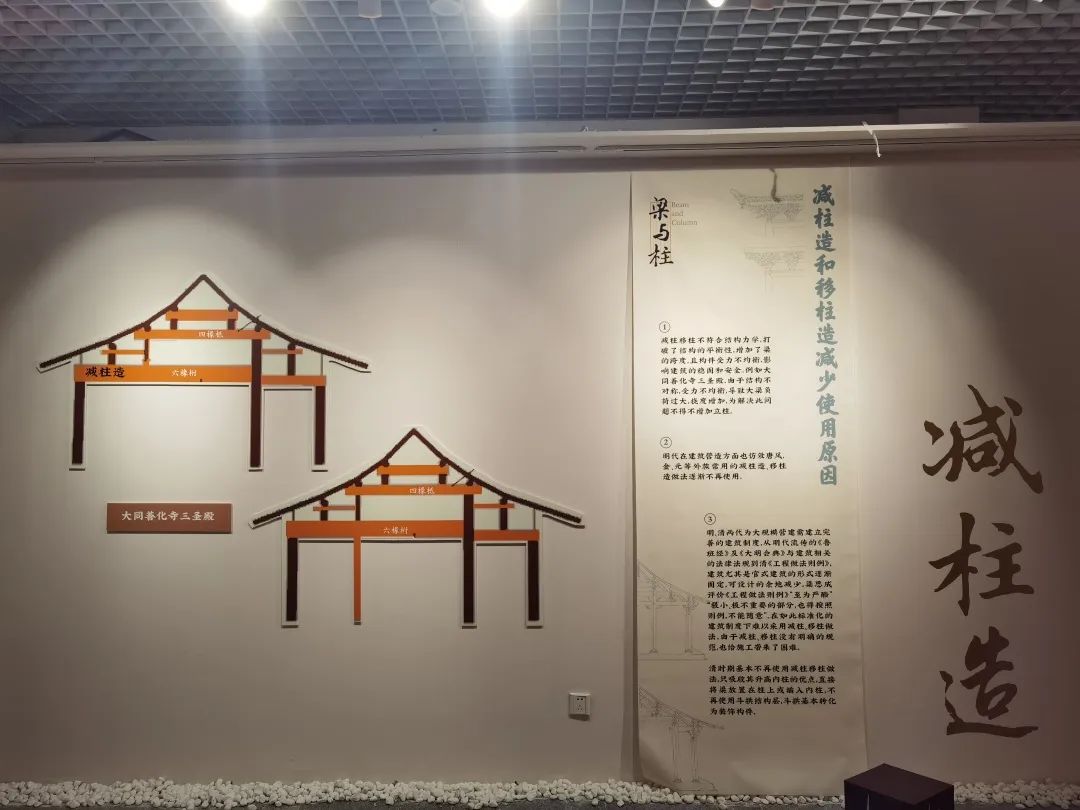 四椽栿
减柱造
六椽栿
大同善化寺三圣殿
四椽栿
六椽栿
梁与柱
Beam
and
Column
减柱造和移柱造减少使用原因
①
减柱移柱不符合结构力学,打
破了结构的平衡性,增加了梁
的跨度,且构件受力不均衡,影
响建筑的稳固和安全,例如大
同善化寺三圣殿,由于结构不
对称,受力不均衡,导致大梁负
荷过大,挠度增加,为解决此问
题不得不增加立柱。
②
明代在建筑营造方面也仿效唐风,
金、元等外族常用的减柱造、移柱
造做法逐渐不再使用。
③
明、清两代为大规模营建需建立完
善的建筑制度,从明代流传的《鲁
班经》及《大明会典》与建筑相关
的法律法规到清《工程做法则例》,
建筑尤其是官式建筑的形式逐渐
固定,可设计的余地减少,梁思成
评价《工程做法则例》“至为严酷”
“最小、极不重要的部分,也得按照
则例,不能随意”,在如此标准化的
建筑制度下难以采用减柱、移柱做
法,由于减柱、移柱没有明确的规
范,也给施工带来了困难。
清时期基本不再使用减柱移柱做
法,只吸收其升高内柱的优点,直接
将梁放置在柱上或插入内柱,不
再使用斗拱结构层,斗拱基本转化
为装饰构件。
减柱造